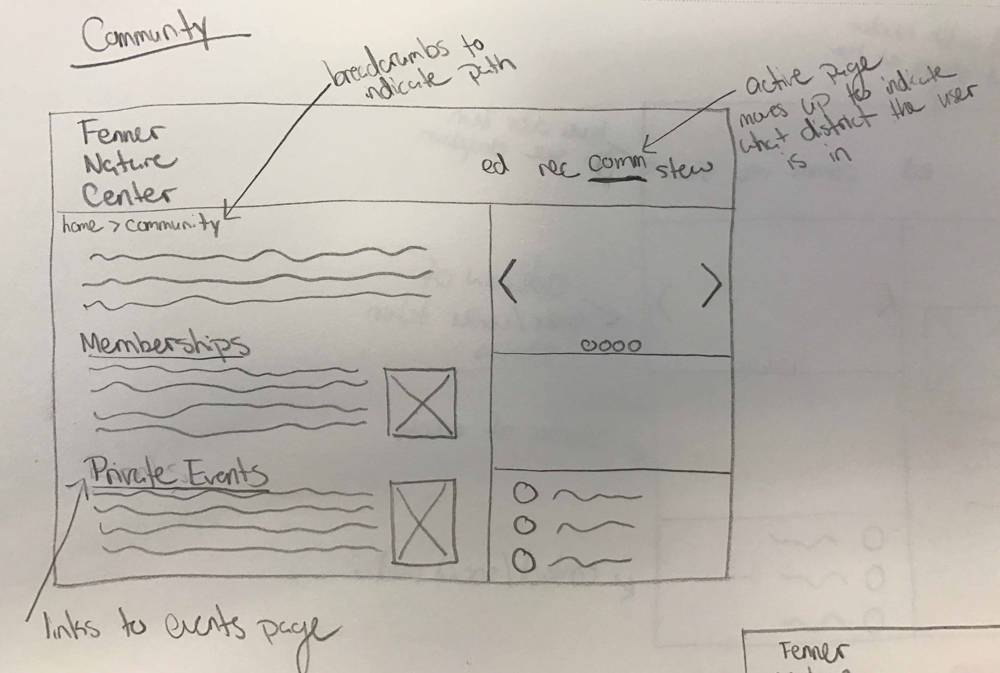 Community
breadcrumbs to
indicate path
active page
moves up to indicate
what district the user
is in
Fenner
Nature
Center
ed rec comm stew
home > community
Memberships
Private Events
links to events page
Fenner